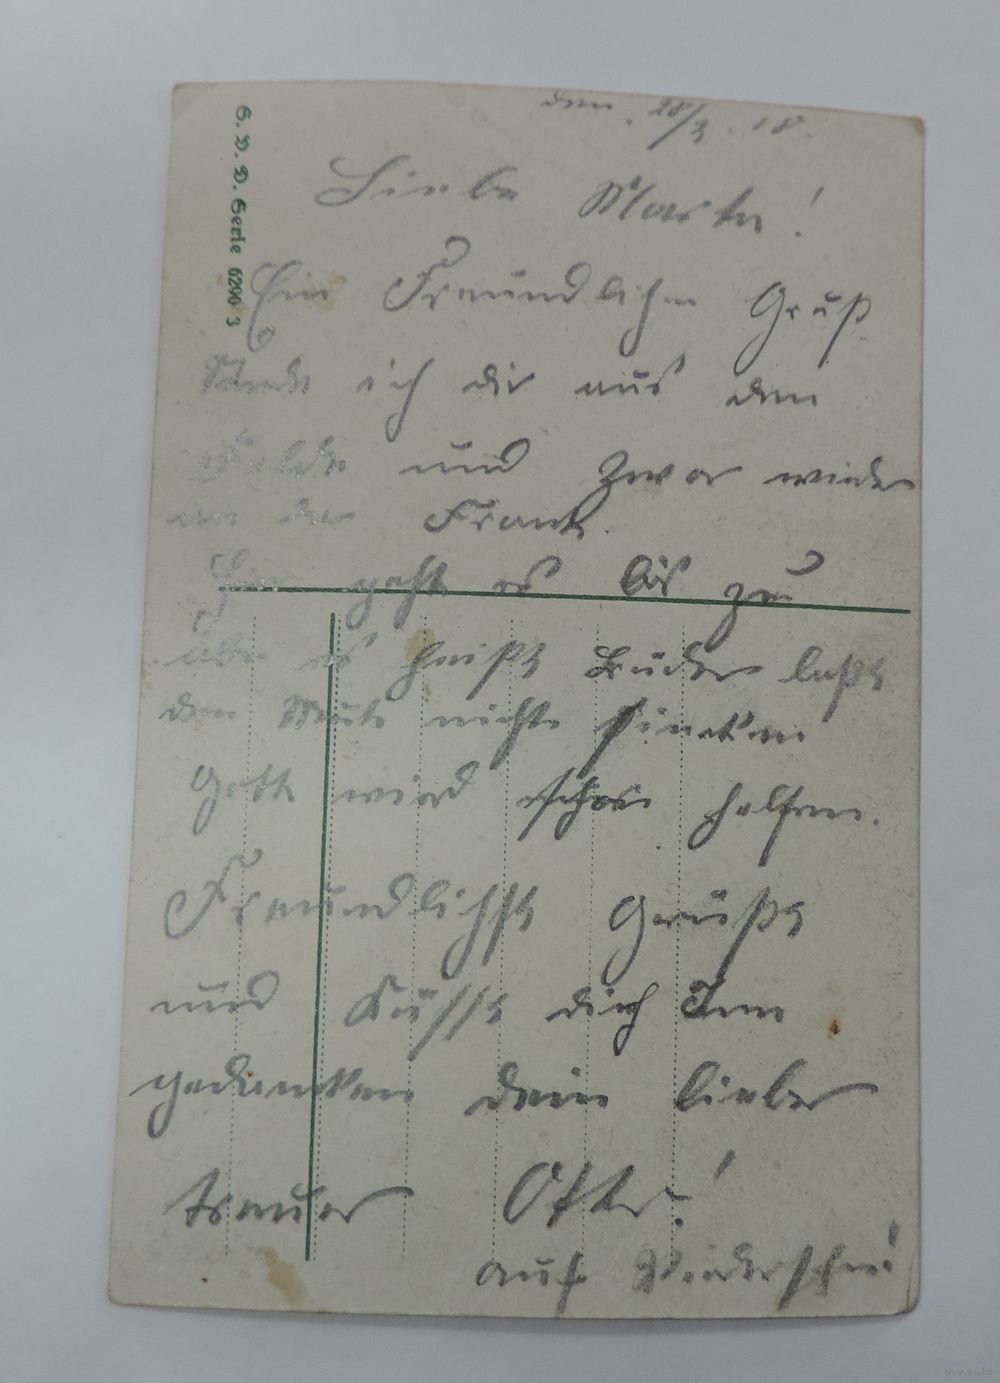 S. V. D. Serie 6290 3
den. 28/3. 18.
Liebe Marta!
Ein Freundlichen Gruß
Sende ich dir aus dem
Felde und Zwar wieder
an der Front.
Hier geht es bis zu
aber es heißt Brüder laßt
den Mut nicht sincken
Gott wird schon helfen.
Freundlichst Grüßt
und Küsst dich Inn
gedancken dein lieber
treuer
auf Wiedersehn!
www.ay.by